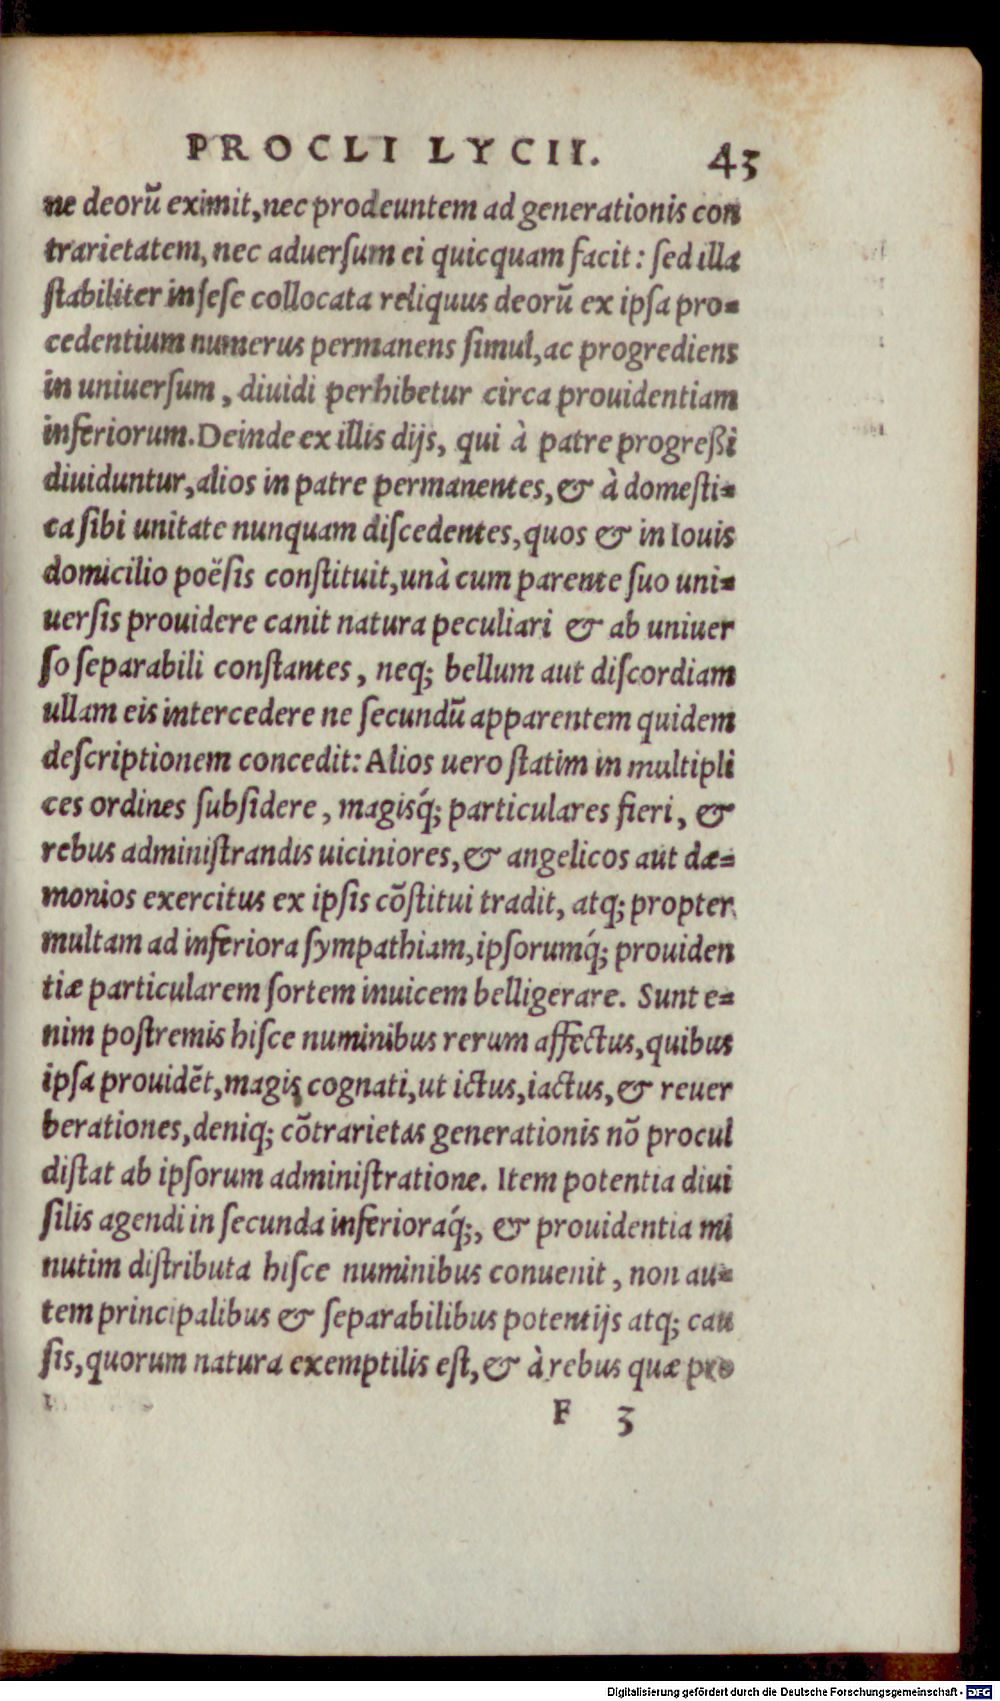 PROCLI LYCII. 43
ne deorũ eximit, nec prodeuntem ad generationis con
trarietatem, nec aduersum ei quicquam facit: sed illa
stabiliter in sese collocata reliquus deorũ ex ipsa pro=
cedentium numerus permanens simul, ac progrediens
in uniuersum, diuidi perhibetur circa prouidentiam
inferiorum. Deinde ex illis dijs, qui à patre progreßi
diuiduntur, alios in patre permanentes, & à domesti=
ca sibi unitate nunquam discedentes, quos & in Iouis
domicilio poësis constituit, unà cum parente suo uni=
uersis prouidere canit natura peculiari & ab uniuer
so separabili constantes, neq; bellum aut discordiam
ullam eis intercedere ne secundũ apparentem quidem
descriptionem concedit: Alios uero statim in multipli
ces ordines subsidere, magisq́; particulares fieri, &
rebus administrandis uiciniores, & angelicos aut dæ=
monios exercitus ex ipsis cõstitui tradit, atq; propter
multam ad inferiora sympathiam, ipsorumq́; prouiden
tiæ particularem sortem inuicem belligerare. Sunt e=
nim postremis hisce numinibus rerum affectus, quibus
ipsa prouidẽt, magis cognati, ut ictus, iactus, & reuer
berationes, deniq; cõtrarietas generationis nõ procul
distat ab ipsorum administratione. Item potentia diui
silis agendi in secunda inferioraq́;, & prouidentia mi
nutim distributa hisce numinibus conuenit, non au=
tem principalibus & separabilibus potentijs atq; cau
sis, quorum natura exemptilis est, & à rebus quæ pro
F 3
Digitalisierung gefördert durch die Deutsche Forschungsgemeinschaft - DFG